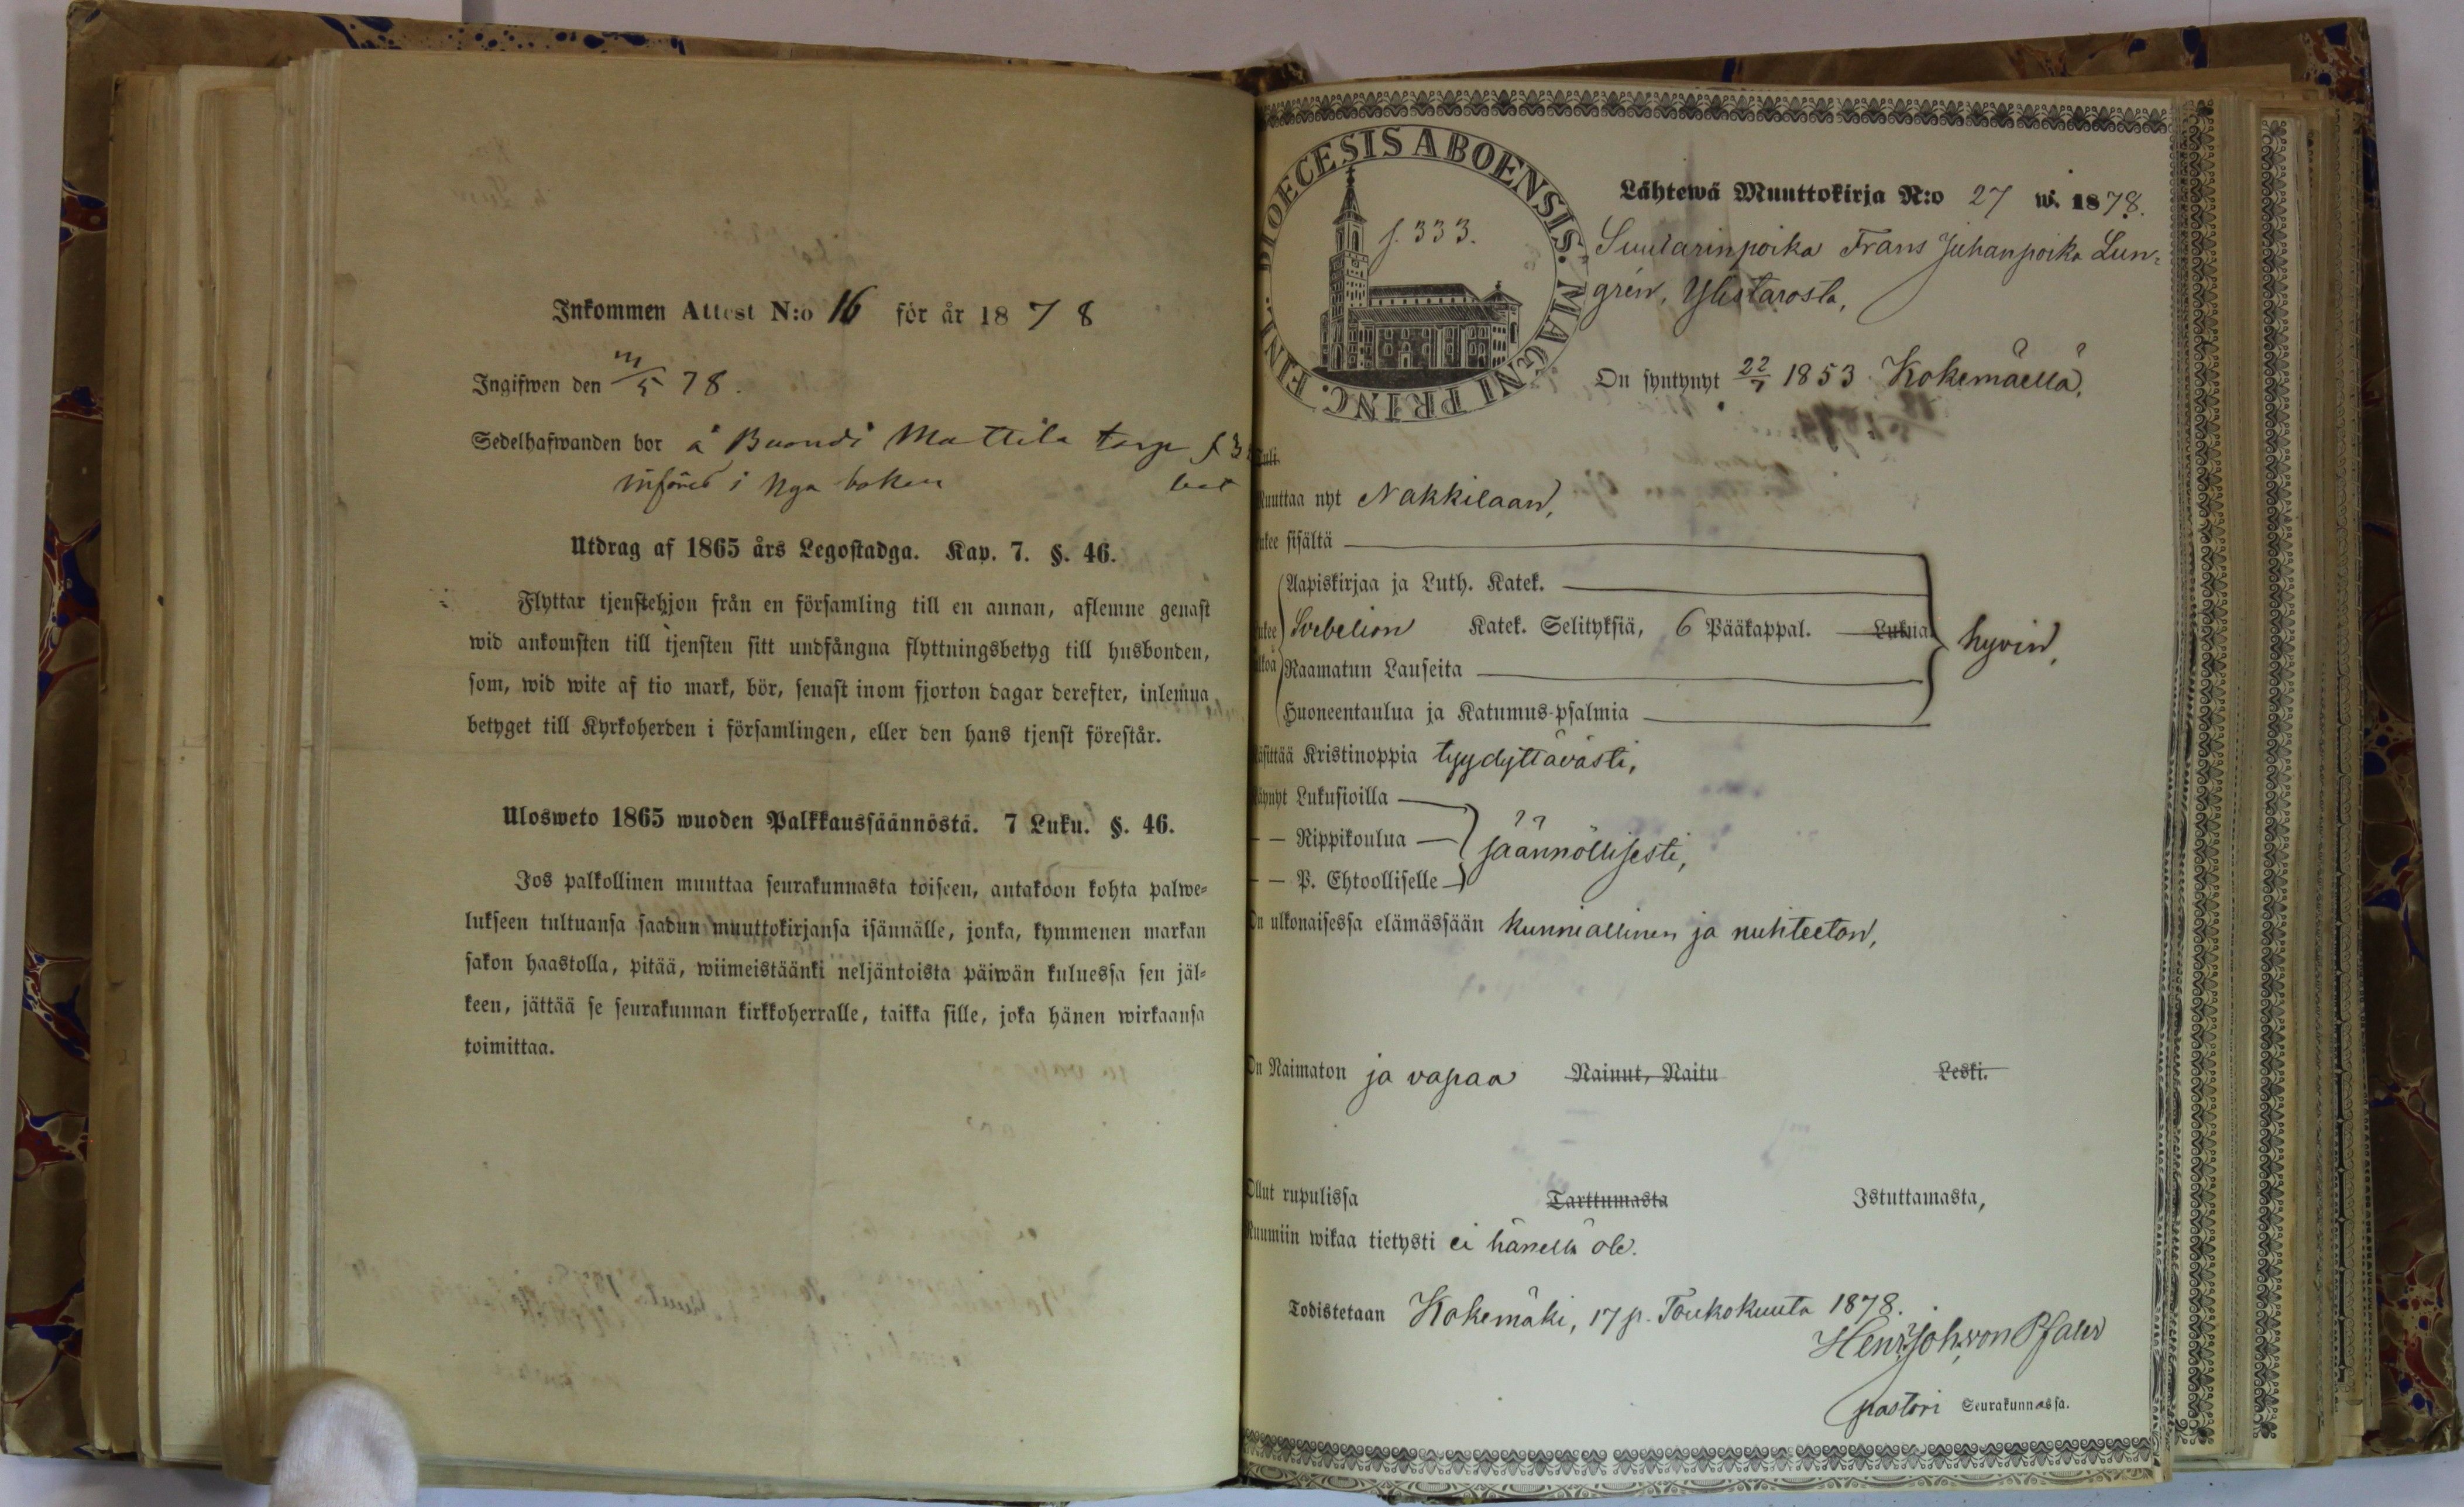 Inkommen Attest N:o 16 för år 1878
Ingifwen den /5 78.
Sedelhafwanden bor å Mattila torp
införd i Nya boken
Utdrag af 1865 års Legostadga. Kap. 7. §. 46.
Flyttar tjenstehjon från en församling till en annan, aflemne genast
wid ankomsten till tjensten sitt undfångna flyttningsbetyg till husbonden,
som, wid wite af tio mark, bör, senast inom fjorton dagar derefter, inlemna
betyget till Kyrkoherden i församlingen, eller den hans tjenst förestår.
Ulosweto 1865 wuoden Palkkaussäännöstä. 7 Luku. §. 46.
Jos palkollinen muuttaa seurakunnasta toiseen, antakoon kohta palwe=
lukseen tultuansa saadun muuttokirjansa isännälle, jonka, kymmenen markan
sakon haastolla, pitää, wiimeistäänki neljäntoista päiwän kuluessa sen jäl=
keen, jättää se seurakunnan kirkkoherralle, taikka sille, joka hänen wirkaansa
toimittaa.
DIOECESIS ABOENSIS. MAGNI PRINC. FINL.
f. 333.
Lähtewä Muuttokirja N:o 27 w. 1878.
Suutarinpoika Frans Juhanpoika Lun=
grén, Ylistarosta,
On syntynyt 22/7 1853 Kokemäellä,
Tuli
Muuttaa nyt Nakkilaan,
Lukee sisältä
Aapiskirjaa ja Luth. Katek.
Svebelion Katek. Selityksiä, 6 Pääkappal. Lukua
hyvin,
Raamatun Lauseita
Huoneentaulua ja Katumus-psalmia
Käsittää Kristinoppia tyydyttävästi,
Käynyt Lukusioilla
— — Rippikoulua
säännöllisesti,
— — P. Ehtoolliselle
On ulkonaisessa elämässään kunniallinen ja nuhteeton,
On Naimaton ja vapaa Nainut, Naitu Leski.
Ollut rupulissa Tarttumasta Istuttamasta,
Ruumiin wikaa tietysti ei hänellä ole.
Todistetaan Kokemäki, 17 p. Toukokuuta 1878.
Henr. Joh. von Pfaler
pastori Seurakunnassa.